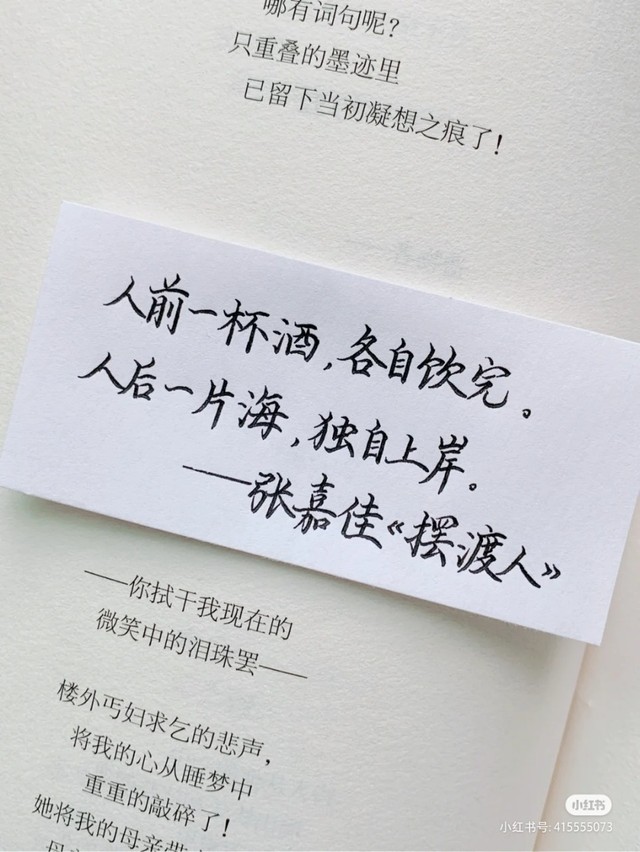 哪有词句呢？
只重叠的墨迹里
已留下当初凝想之痕了！
人前一杯酒,各自饮完。
人后一片海,独自上岸。
——张嘉佳《摆渡人》
——你拭干我现在的
微笑中的泪珠罢——
楼外丐妇求乞的悲声，
将我的心从睡梦中
重重的敲碎了！
她将我的母亲带
小红书
小红书号: 415555073